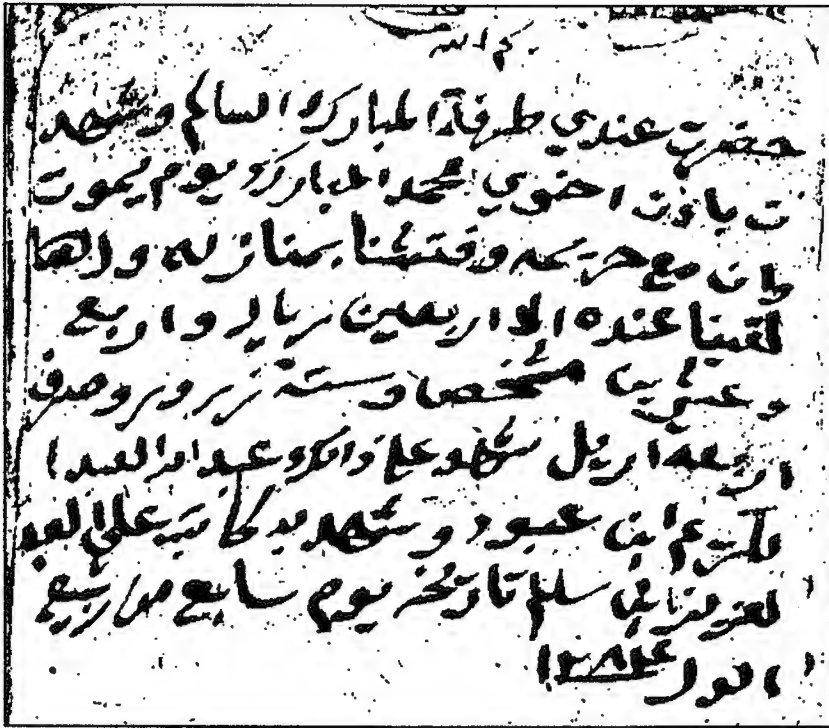 بسم الله
حضرت عندي طرفة المبارك السالم وشهد
ت بان اخوي محمد المبارك يوم يموت
وان مع حريمه وفتشنا بمنازله والها
لقينا عنده الا اربعين ريال واربع
وعشرين مشخص وستة زرور وصرف
اربعة اريل شهد على ذالك عبد الله العبد ا
لكريم ابن عبود وشهد به كاتبه علي العبد ا
لعزيز ابن سالم تاريخه يوم سابع من ربيع
الول ١٢٨٤